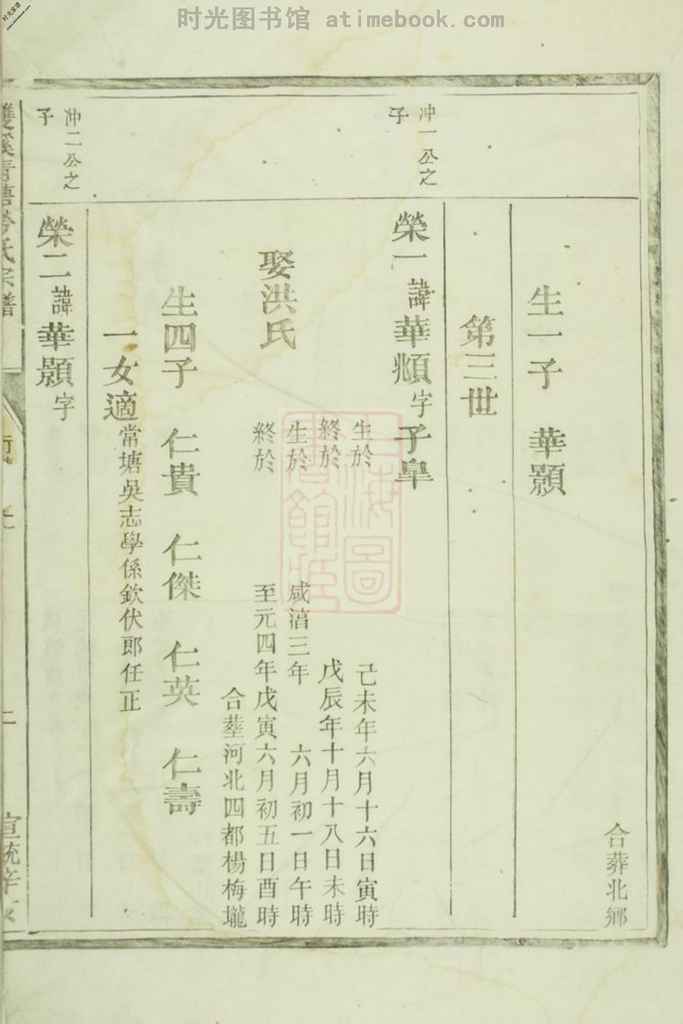 时光图书馆 atimebook.com
合葬北鄉
生一子 華顥
第三世
冲一公之
子
榮一諱華頫字子臯
生於 己未年六月十六日寅時
終於 戊辰年十月十八日未時
娶洪氏
生於 咸淳三年 六月初一日午時
終於 至元四年戊寅六月初五日酉時
合塟河北四都楊梅壠
生四子 仁貴 仁傑 仁英 仁壽
一女適常塘吳志學係欽伏郎任正
冲二公之
子
榮二諱華顥字
二